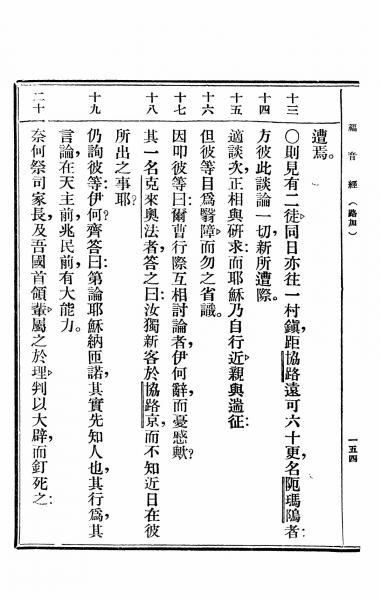 福音經（路加） 一五四
遭焉。
十三 〇則見有二徒，同日亦往一村鎮，距協路遠可六十更，名阨瑪隖者：
十四 方彼此談論一切，新所遭際。
十五 適談次，正相與研求：而耶穌乃自行近，親與遄征：
十六 但彼等目爲翳障，而勿之省識。
十七 因叩彼等曰：爾曹行際互相討論者，伊何辭，而憂慼歟？
十八 其一名克來奧法者，答之曰：汝獨新客於協路京，而不知近日在彼
所出之事耶？
十九 仍詢彼等：伊何？齊答曰：第論耶穌納匝諾，其實先知人也，其行爲，其
言論，在天主前，兆民前，有大能力。
二十 奈何祭司家長，及吾國首領輩，屬之於理，判以大辟，而釘死之：